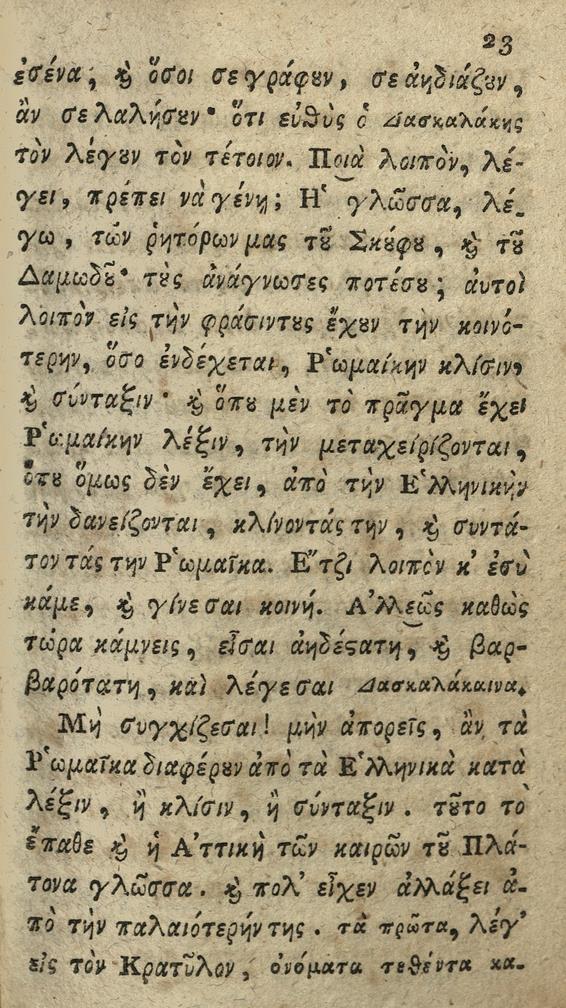 23
ἐσένα, ϗ̀ ὅσοι σε γράφȣν, σε ἀηδιάζȣν,
ἂν σε λαλήσȣν· ὅτι εὐθὺς ὁ Δασκαλάκης
τὸν λέγȣν τὸν τέτοιον. Ποιὰ λοιπὸν, λέ-
γει, πρέπει νὰ γένῃ; Ἡ γλῶσσα, λέ-
γω, τῶν ῥητόρων μας τȣ͂ Σκȣ́φȣ, ϗ̀ τȣ͂
Δαμωδȣ͂· τὲς ἀνάγνωσες ποτέσȣ; ἀυτοὶ
λοιπὸν εἰς τὴν φράσιντȣς ἔχȣν τὴν κοινό-
τερην, ὅσο ἐνδέχεται, Ῥωμαίκην κλίσιν,
ϗ̀ σύνταξιν· ϗ̀ ὅπȣ μὲν τὸ πρᾶγμα ἔχει
Ῥωμαίκην λέξιν, τὴν μεταχειρίζονται,
ὅπȣ ὅμως δὲν ἔχει, ἀπὸ τὴν Ἑλληνικὴν
τὴν δανείζονται, κλίνοντάς την, ϗ̀ συντά-
τοντάς την Ῥωμαῖκα. Ἔτζι λοιπὸν κ' ἐσὺ
κάμε, ϗ̀ γίνεσαι κοινή. Ἀλλεῶς καθὼς
τώρα κάμνεις, εἶσαι ἀηδέϛατη, ϗ̀ βαρ-
βαρότατη, καὶ λέγεσαι Δασκαλάκαινα.
Μὴ συγχίζεσαι! μὴν ἀπορεῖς, ἂν τὰ
Ῥωμαῖκα διαφέρȣν ἀπὸ τὰ Ἑλληνικὰ κατὰ
λέξιν, ἢ κλίσιν, ἢ σύνταξιν. τȣ͂το τὸ
ἔπαθε ϗ̀ ἡ Ἀττικὴ τῶν καιρῶν τȣ͂ Πλά-
τονα γλῶσσα. ϗ̀ πολ' εἶχεν ἀλλάξει ἀ-
πὸ τὴν παλαιότερήν της. τὰ πρῶτα, λέγ'
εἰς τὸν Κρατῦλον, ὀνόματα τεθέντα κα-